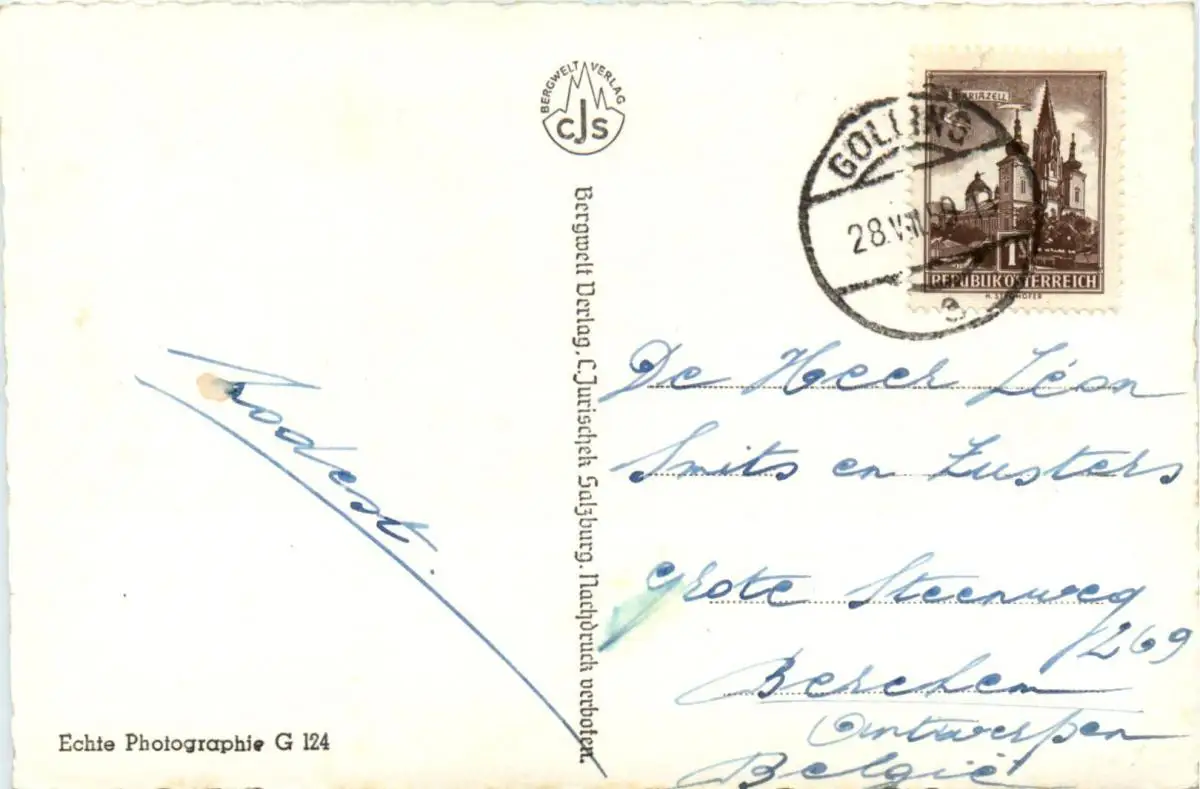 BERGWELT VERLAG
CJS
Bergwelt Verlag, C. Jurischek Salzburg. Nachdruck verboten.
MARIAZELL
GOLLING
28.VIII.59
1
REPUBLIK ÖSTERREICH
De Heer Léon
Smits en Zusters
Grote Steenweg
269
Berchem
Antwerpen
België
Echte Photographie G 124